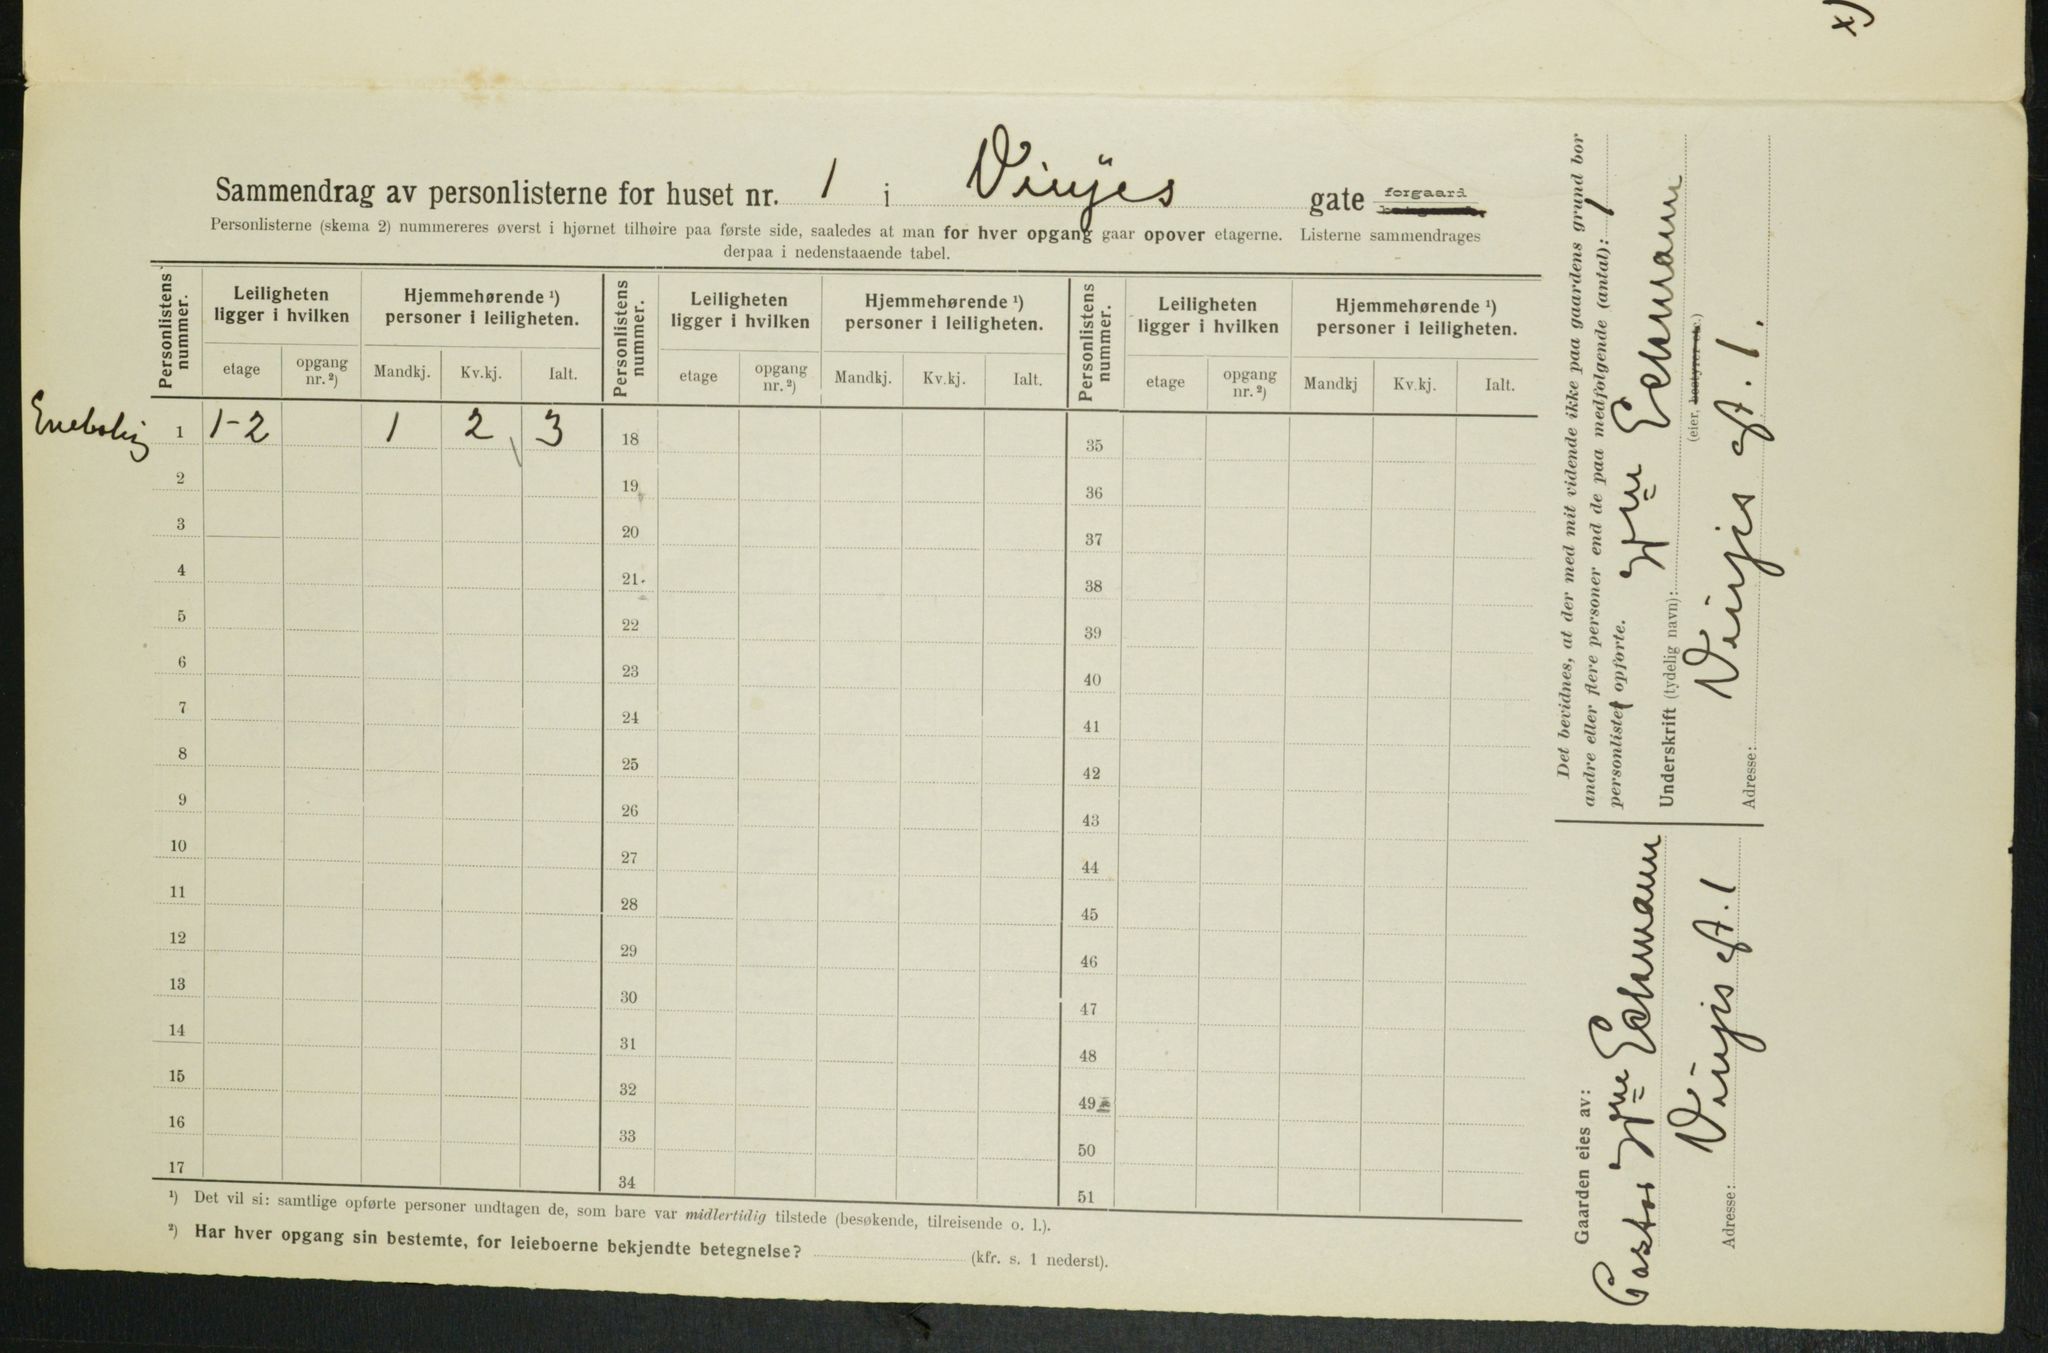 x)
Sammendrag av personlisterne for huset nr. 1 i Vinjes gate forgaard
Personlisterne (skema 2) nummereres øverst i hjørnet tilhøire paa første side, saaledes at man for hver opgang gaar opover etagerne. Listerne sammendrages
derpaa i nedenstaaende tabel.
Personlistens nummer. Leiligheten ligger i hvilken Hjemmehørende ¹) personer i leiligheten. Personlistens nummer. Leiligheten ligger i hvilken Hjemmehørende ¹) personer i leiligheten. Personlistens nummer. Leiligheten ligger i hvilken Hjemmehørende ¹) personer i leiligheten.
etage opgang nr. ²) Mandkj. Kv.kj. Ialt. etage opgang nr. ²) Mandkj. Kv.kj. Ialt. etage opgang nr. ²) Mandkj Kv.kj. Ialt.
Enebolig 1 1-2 1 2 3 18 35
2 19 36
3 20 37
4 21 38
5 22 39
6 23 40
7 24 41
8 25 42
9 26 43
10 27 44
11 28 45
12 29 46
13 30 47
14 31 48
15 32 49
16 33 50
17 34 51
¹) Det vil si: samtlige opførte personer undtagen de, som bare var midlertidig tilstede (besøkende, tilreisende o. l.).
²) Har hver opgang sin bestemte, for leieboerne bekjendte betegnelse? (kfr. s. 1 nederst).
Det bevidnes, at der med mit vidende ikke paa gaardens grund bor
andre eller flere personer end de paa medfølgende (antal): 1
personlister opførte.
Underskrift (tydelig navn): Wm Eckmann
(eier, bestyrer etc.)
Adresse: Vinjes gt. 1.
Gaarden eies av:
Pastor Wm Eckmann
Adresse: Vinjes gt. 1